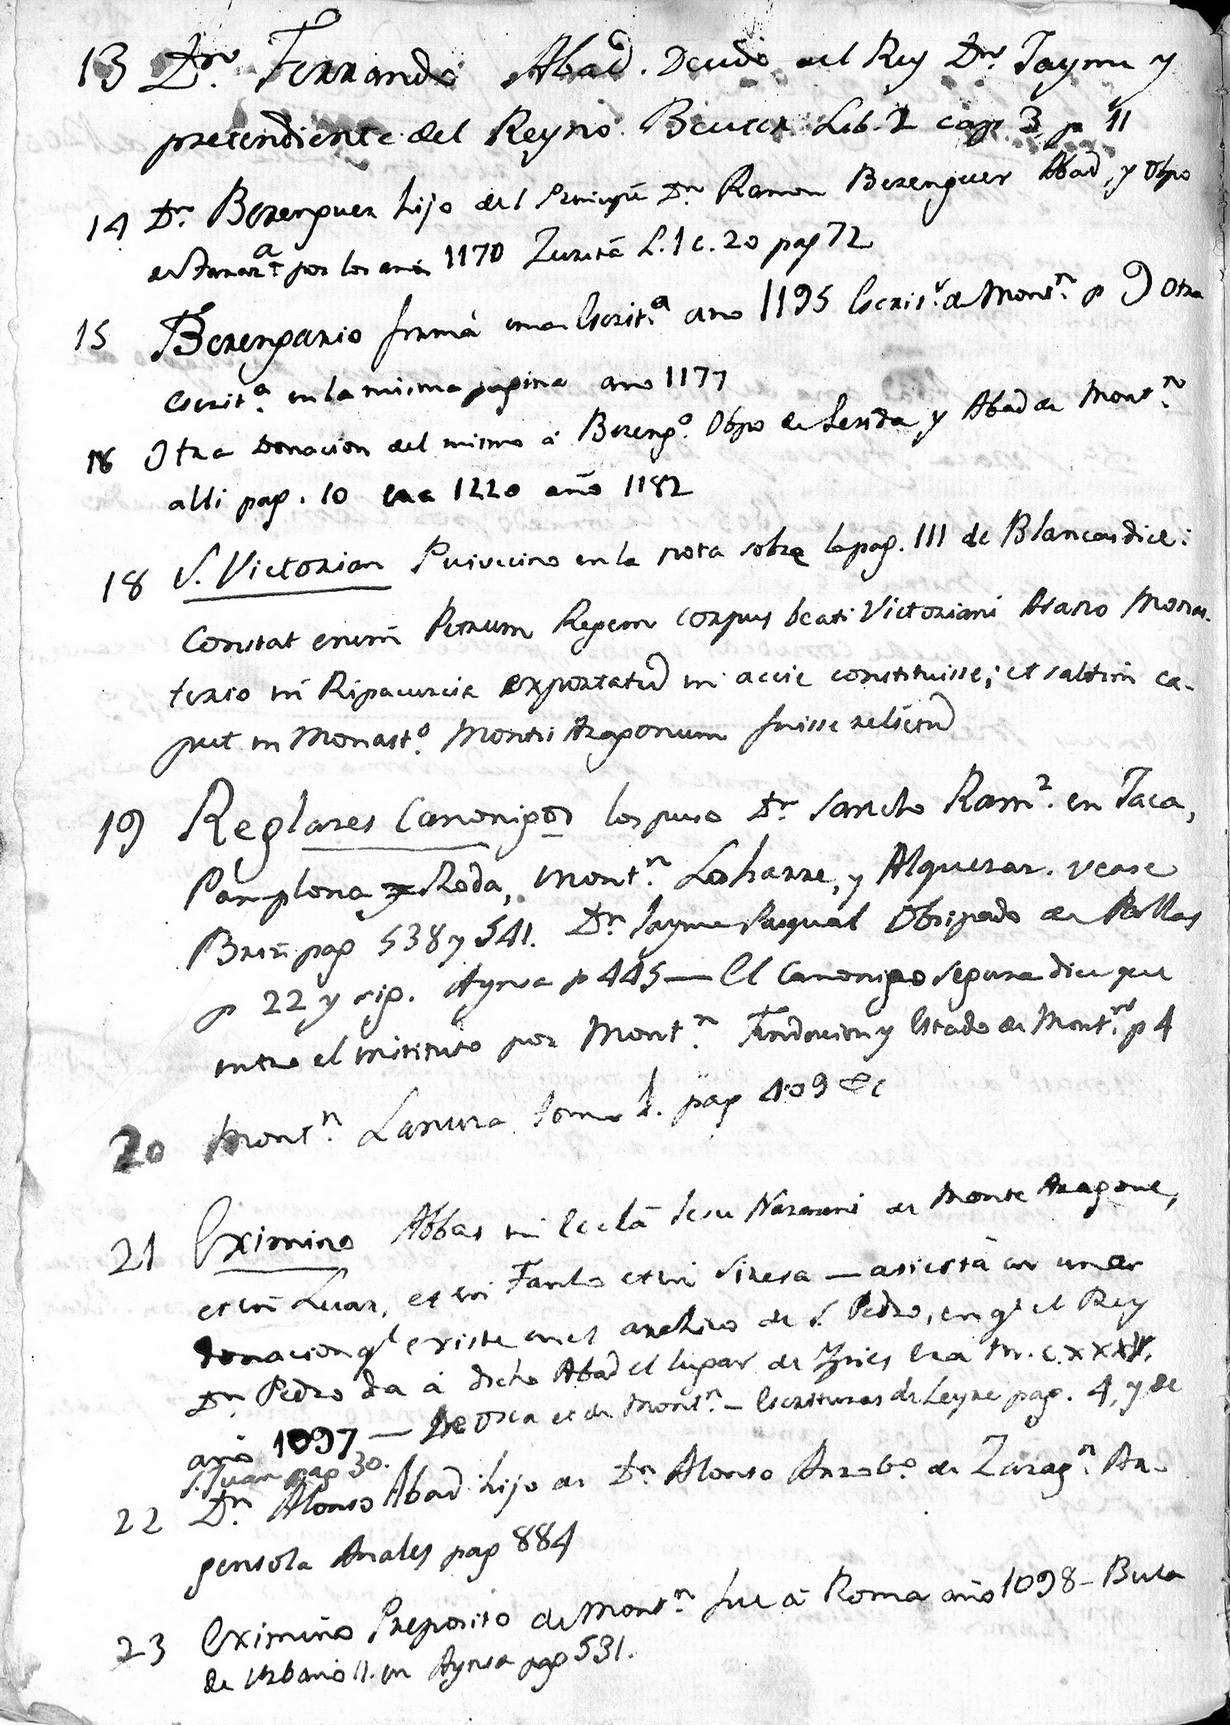 13 Dn. Ferrando Abad. Deudo del Rey Dn. Jayme y
pretendiente del Reyno. Beuter Lib. 2 cap. 3 p 11
14 Dn. Berenguer hijo del Principe Dn. Ramon Berenguer Abad, y Obpo
de por los años 1170 Zurita L. 1 c. 20 pag 72
15 Berengario firmá una Escrita. ano 1195 Escrit. de Montn. p 9 Otra
Escrita. en la misma pagina ano 1177
16 Otra Donacion del mismo á Berengo. Obpo de Lerida y Abad de Montn.
alli pag. 10 era 1220 año 1182
18 S. Victorian Puivecino en la nota sobre la pag. 111 de Blancas dice:
Constat enim Petrum Regem corpus beati Victoriani Asano Monas-
terio in Ripacurcia exportatũ in acie constituisse; et saltim ca-
put in Monasto. Montis Aragonum fuisse relictũ
19 Reglares Canonigos los puso Dn. Sancho Ramz. en Jaca,
Pamplona, y Roda, Montn. Loharre, y Alquezar. vease
Briz pag 538 y 541. Dn. Jayme Pasqual Obispado de Pallas
p 22 y sig. Aynsa p 445 — El Canonigo Segura dice que
entro el instituto por Montn. Fundacion y Estado de Montn. p 4
20 Montn. Lanuza tomo 1. pag 409 &c
21 Eximino Abbas in Eccla Iesu Nazareni de Monte Aragone,
et in Luar, et in Fanlo et in Siresa — asi está en una
donacion ql existe en el archivo de S. Pedro, en ql el Rey
Dn. Pedro da á dicho Abad el lugar de Era M. C. XXXV.
año 1097 — de Osca et de Montn. — Escrituras de Leyre pag. 4, y de
S. Juan pag 30.
22 Dn. Alonso Abad hijo de Dn. Alonso Arzobo. de Zaragn. Ar-
gensola Anales pag 884
23 Eximino Preposito de Montn. fue á Roma año 1098 — Bula
de Urbano II. en Aynsa pag 531.